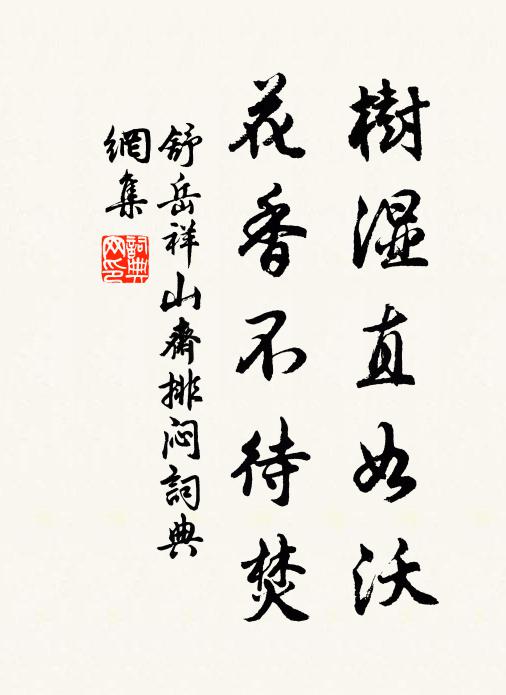 樹湿直如沃
花香不待焚
舒岳祥山齋排闷詞典
網集
詞典
网印